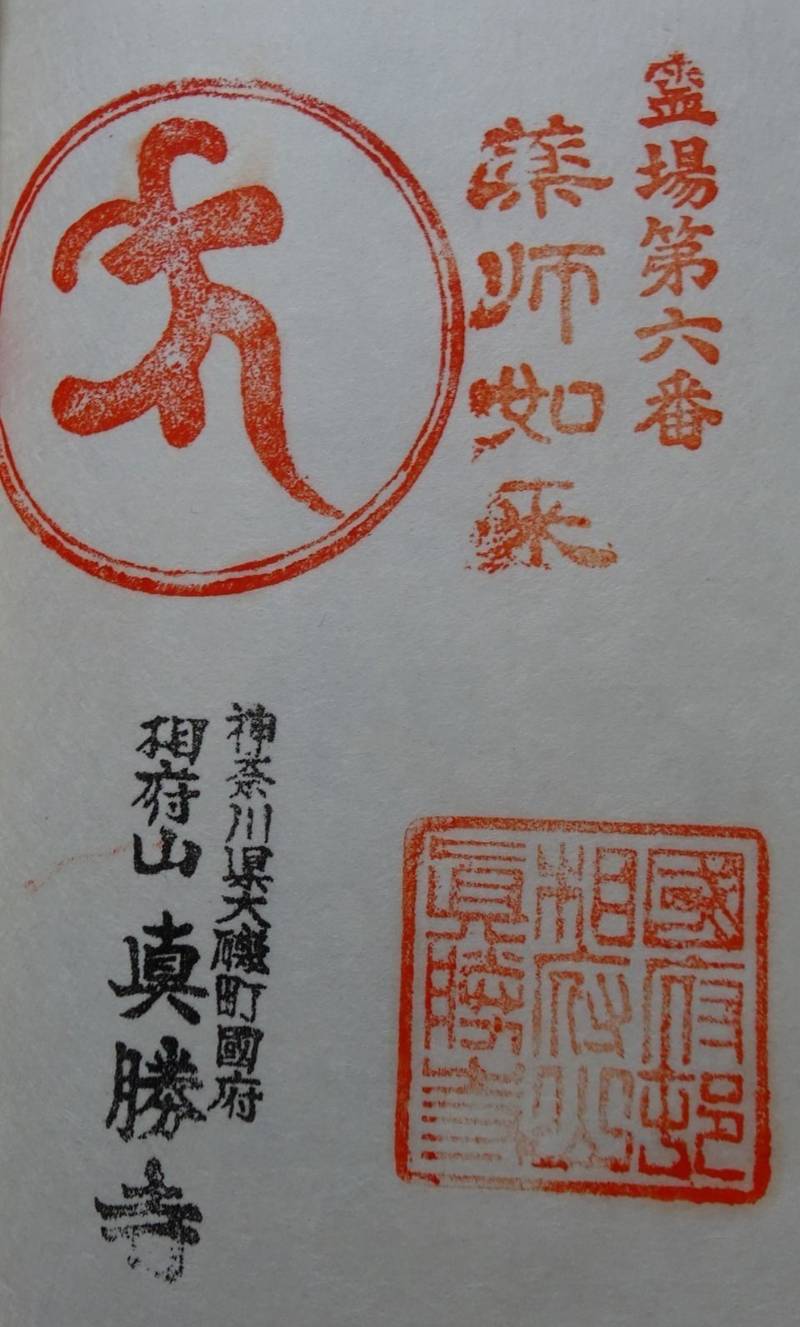 霊場第六番
薬师如来
𑖎
神奈川県大磯町國府
相府山 眞勝寺
國府邨
相府山
眞勝寺